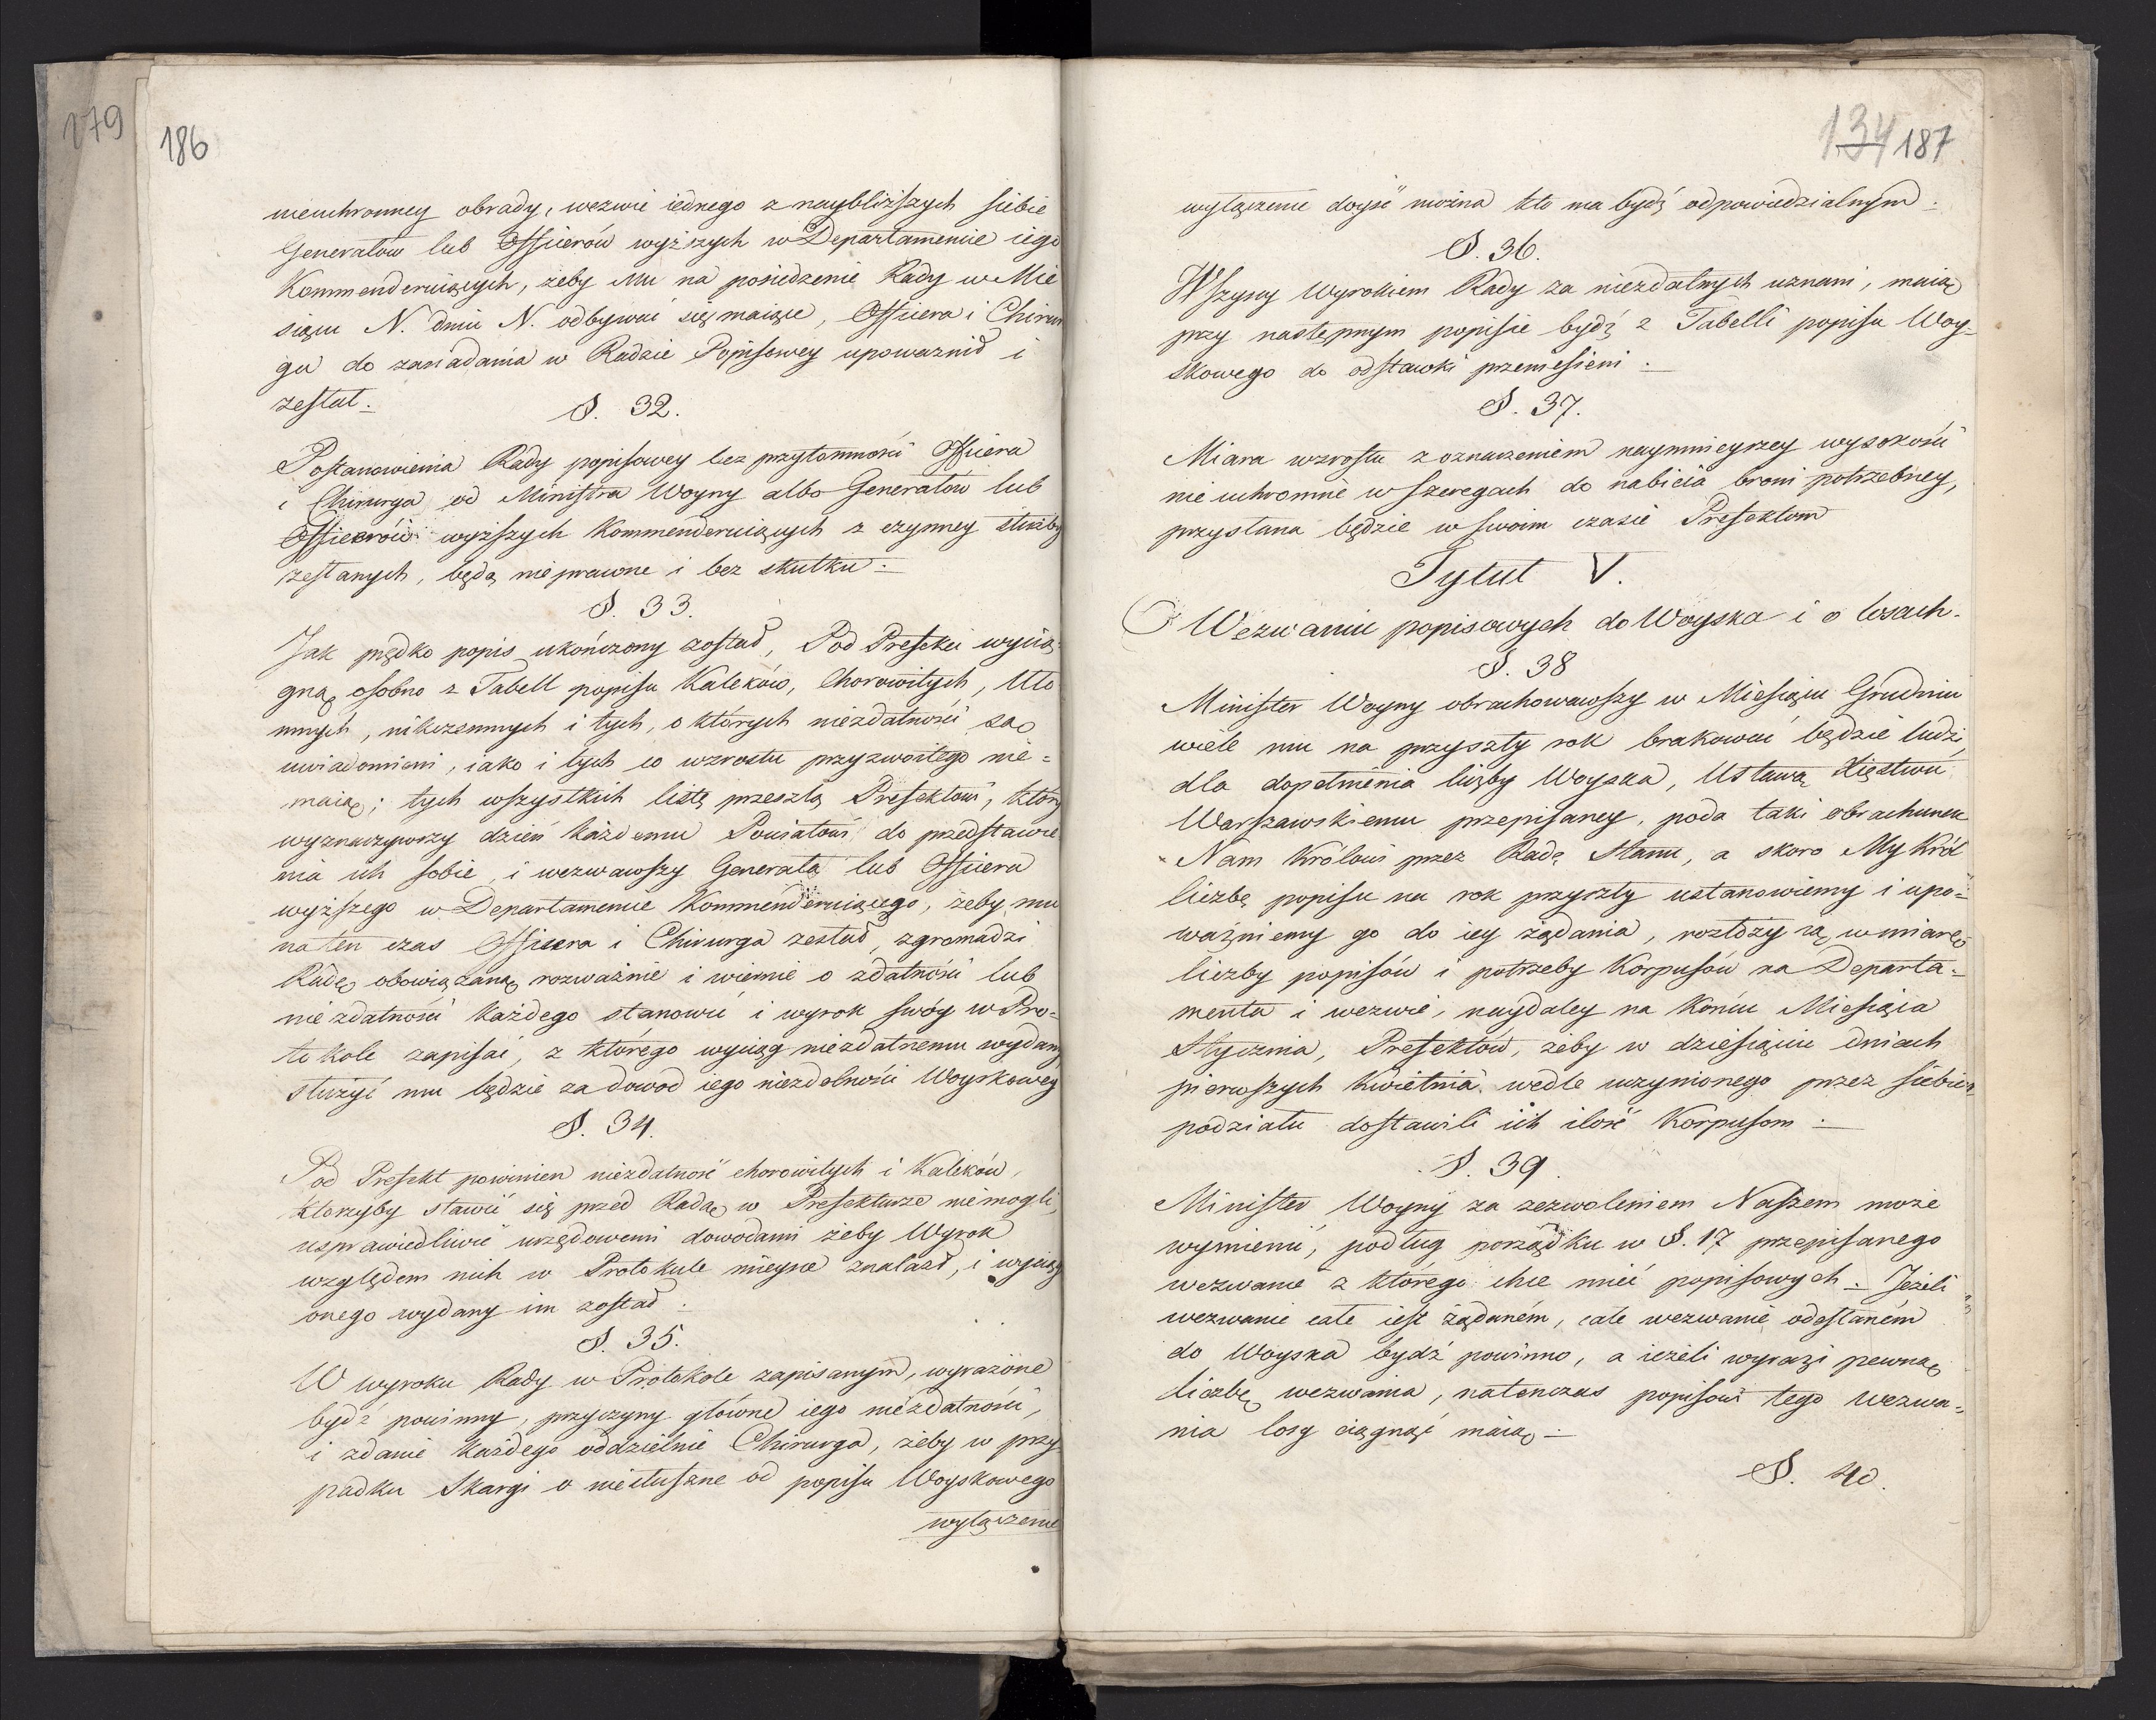 179
186
nieuchronney obrady, wezwie iednego z naybliższych siebie
Generałow lub Officerów wyższych w Departamencie iego
Kommenderuiących, żeby Mu na posiedzenie Rady w Mie
siącu N. dniu N. odbywać się maiące, Officera i Chirur
ga do zasiadania w Radzie Popisowey upoważnił i
zesłał.
§. 32.
Postanowienia Rady popisowey bez przytomności Officera
i Chirurga od Ministra Woyny albo Generałów lub
Officerów wyższych Kommenderuiących z czynney służby
zesłanych, będą nieprawne i bez skutku.
§. 33.
Jak prędko popis ukończony został, Pod Prefekci wycią-
gną osobno z Tabell popisu Kaleków, Chorowitych, Uło
mnych, nikczemnych i tych, o których niezdatności są
uwiadomieni, iako i tych co wzrostu przyzwoitego nie=
maią; tych wszystkich listę przeszlą Prefektowi, który
wyznaczywszy dzień każdemu Powiatowi do przedstawie
nia ich sobie, i wezwawszy Generała lub Officera
wyższego w Departamencie Kommenderuiącego, żeby mu
na ten czas Officera i Chirurga zesłał, zgromadzi
Radę obowiązaną rozważnie i wiernie o zdatności lub
niezdatności każdego stanowić i wyrok swóy w Pro-
tokole zapisać, z którego wyciąg niezdatnemu wydany
służyć mu będzie za dowod iego niezdolności Woyskowey
§. 34.
Pod Prefekt powinien niezdatność chorowitych i Kaleków,
ktorzyby stawić się przed Radą w Prefekturze niemogli,
usprawiedliwić urzędowemi dowodami żeby Wyrok
względem nich w Protokule mieysce znalazł, i wyciąg
onego wydany im został.
§. 35.
W wyroku Rady w Protokole zapisanym, wyrażone
bydź powinny, przyczyny główne iego niezdatności,
i zdanie każdego oddzielnie Chirurga, żeby w przy-
padku Skargi o niesłuszne od popisu Woyskowego
wyłączenie
134 187
wyłączenie doyść można kto ma bydź odpowiedzialnym.
§. 36.
Wszyscy Wyrokiem Rady za niezdatnych uznani, maią
przy następnym popisie bydź z Tabelli popisu Woy-
skowego do odstawki przeniesieni.
§. 37.
Miara wzrostu z oznaczeniem naymnieyszey wysokości
nieuchronnie w szeregach do nabicia broni potrzebney,
przysłana będzie w swoim czasie Prefektom
Tytuł V.
O Wezwaniu popisowych do Woyska i o losach.
§. 38
Minister Woyny obrachowawszy w Miesiącu Grudniu
wiele mu na przyszły rok brakować będzie ludzi,
dla dopełnienia liczby Woyska, Ustawą Xięstwu
Warszawskiemu przepisaney, poda taki obrachunek
Nam Królowi przez Radę Stanu, a skoro My Król
liczbę popisu na rok przyszły ustanowiemy i upo=
ważniemy go do iey żądania, rozłoży ią w miarę
liczby popisów i potrzeby Korpusów na Departa=
menta i wezwie, naydaley na Końcu Miesiąca
Stycznia, Prefektów, żeby w dziesięciu dniach
pierwszych Kwietnia wedle uczynionego przez siebie
podziału dostawili ich ilość Korpusom.
§. 39.
Minister Woyny za zezwoleniem Naszem może
wymienić, podług porządku w §. 17 przepisanego
wezwanie z którego chce mieć popisowych. Jeżeli
wezwanie całe iest żądaném, całe wezwanie odesłaném
do Woyska bydź powinno, a ieżeli wyrazi pewną
liczbę wezwania, natenczas popisowi tego wezwa=
nia losy ciągnąć maią.
§. 40.